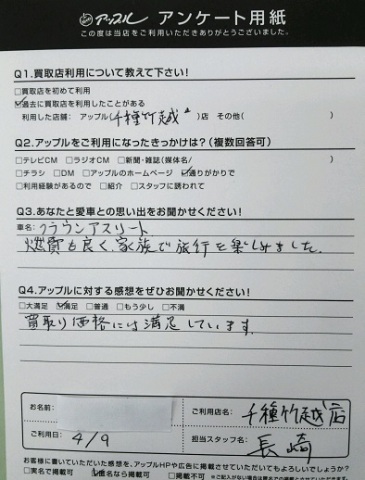 アップル アンケート用紙
この度は当店をご利用いただきありがとうございました。
Q1.買取店利用について教えて下さい!
□買取店を初めて利用
☑過去に買取店を利用したことがある
利用した店舗: アップル(千種竹越)店 その他( )
Q2.アップルをご利用になったきっかけは?(複数回答可)
□テレビCM □ラジオCM □新聞・雑誌(媒体名/ )
□チラシ □DM □アップルのホームページ ☑通りがかりで
□利用経験があるので □紹介 □スタッフに誘われて
Q3.あなたと愛車との思い出をお聞かせください!
車名: クラウンアスリート
燃費も良く、家族で旅行を楽しめました。
Q4.アップルに対する感想をぜひお聞かせください!
□大満足 ☑満足 □普通 □もう少し □不満
買取り価格には満足しています。
お名前: ご利用店名: 千種竹越店
ご利用日: 4/9 担当スタッフ名: 長崎
お客様に書いていただいた感想を、アップルHPや広告に掲載させていただいてもよろしいでしょうか?
□実名で掲載可 ☑匿名なら掲載可 □掲載不可 ※ご記入がない場合は匿名での掲載とさせていただきます。